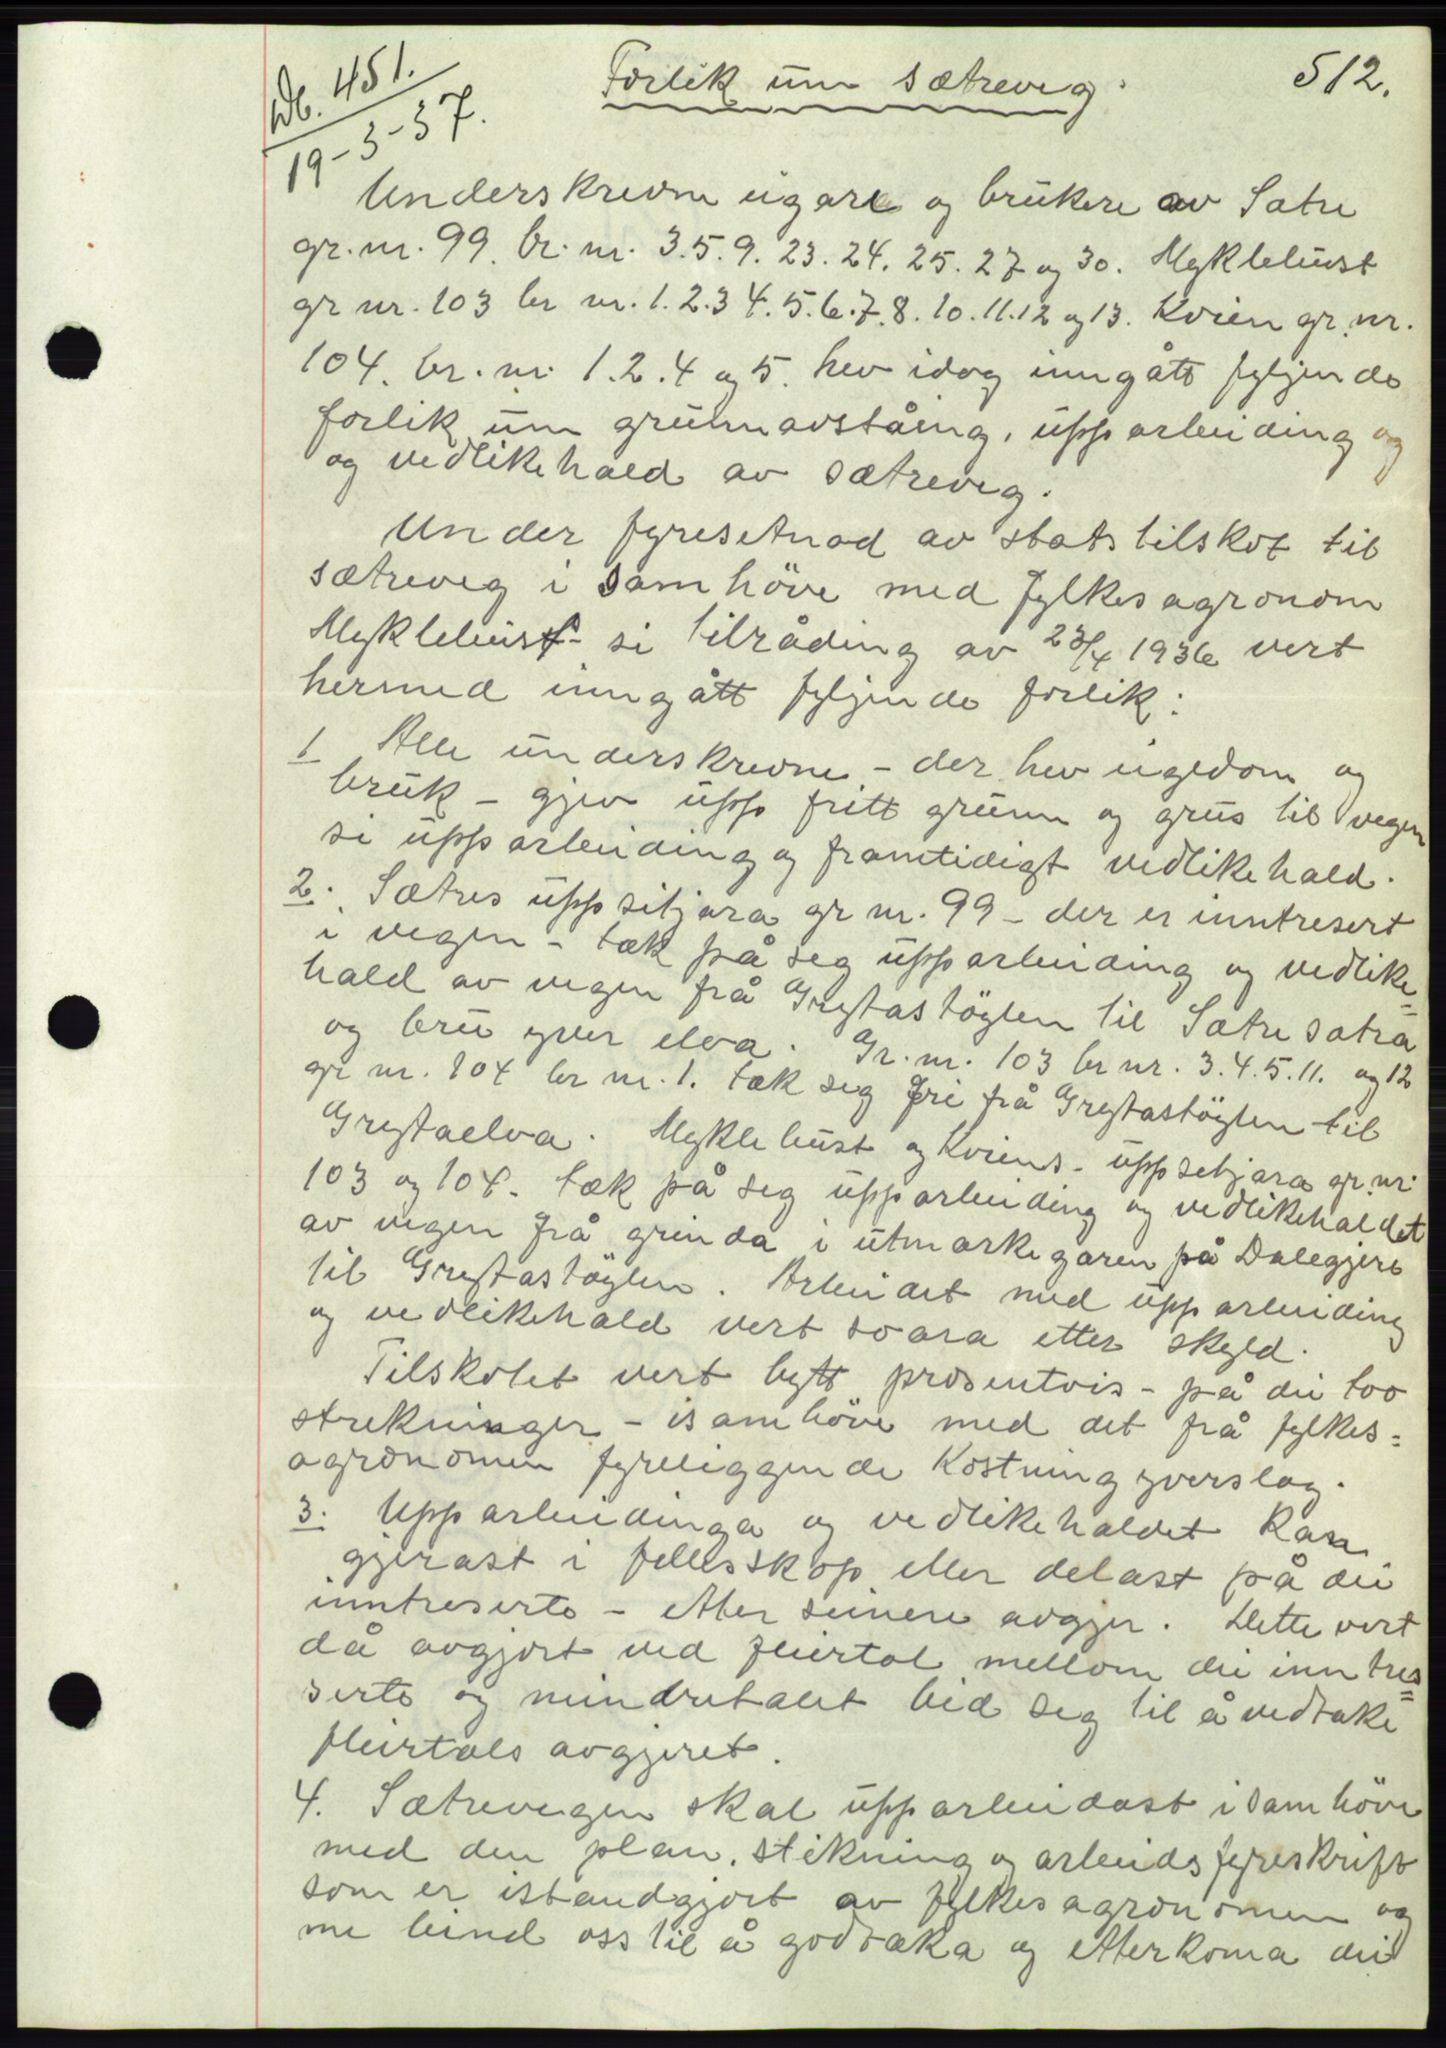 Db. 451.
19-3-37.
Forlik um sætreveg.
512.
Underskrevne eigare og brukere av Sætre
gr. nr. 99. br. nr. 3.5.9. 23. 24. 25. 27 og 30. Myklebust
gr nr. 103 br nr. 1.2.3 4. 5. 6. 7. 8. 10. 11. 12 og 13. Kvien gr. nr.
104. br. nr. 1. 2. 4 og 5. hev idag inngått fyljende
forlik um grunnavståing, upparbeiding og
og vedlikehald av sætreveg.
Under fyresetnad av statstilskot til
sætreveg i samhöve med fylkesagronom
Myklebust si tilråding av 23/4 1936 vert
hermed inngått fyljende forlik:
1 Alle underskrevne - der hev eigedom og
bruk - gjev upp fritt grunn og grus til vegen
si upparbeiding og framtidigt vedlikehald.
2. Sætres uppsitjara gr nr. 99 - der er inntresert
i vegen - tæk på seg upparbeiding og vedlike=
hald av vegen frå Grøtastöylen til Sætre sætra
og bru yver elva. Gr. nr. 103 br nr. 3. 4. 5. 11. og 12
gr nr. 104 br nr. 1. tæk seg fri frå Grøtastöylen til
Grøtaelva. Myklebust og Kviens - uppsitjara gr. nr.
103 og 104. tæk på seg upparbeiding og vedlikehaldet
av vegen frå grinda i utmarkegaren på Dalegjere
til Grøtastöylen. Arbeidet med upparbeiding
og vedlikehald vert svara etter skyld.
Tilskotet vert bytt prosentvis - på dei tvo
strekninger - isamhöve med det frå fylkes=
agronomen fyreliggende kostningyverslag.
3. Upparbeidinga og vedlikehaldet kan
gjerast i fellesskap eller delast på dei
inntreserte - etter seinere avgjer. Dette vert
då avgjort ved fleirtal mellom dei inntres=
serte og mindretalet bid seg til å vedtake
fleirtals avgjeret.
4. Sætrevegen skal upparbeidast i samhöve
med den plan, stikning og arbeidsfyreskrift
som er istandgjort av fylkesagronomen og
me bind oss til å godtaka og etterkoma dei